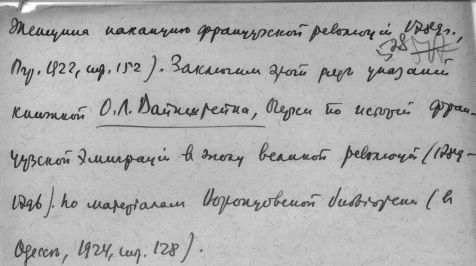 Женщина накануне французской революции 1789 г.,
528
Пгр. 1922, стр. 152). Заключим этот ряд указаний
книжкой О. Л. Вайнштейна, Очерки по истории фран-
цузской эмиграции в эпоху великой революции (1789-
1796). По материалам Воронцовской библиотеки (в
Одессе, 1924, стр. 128).